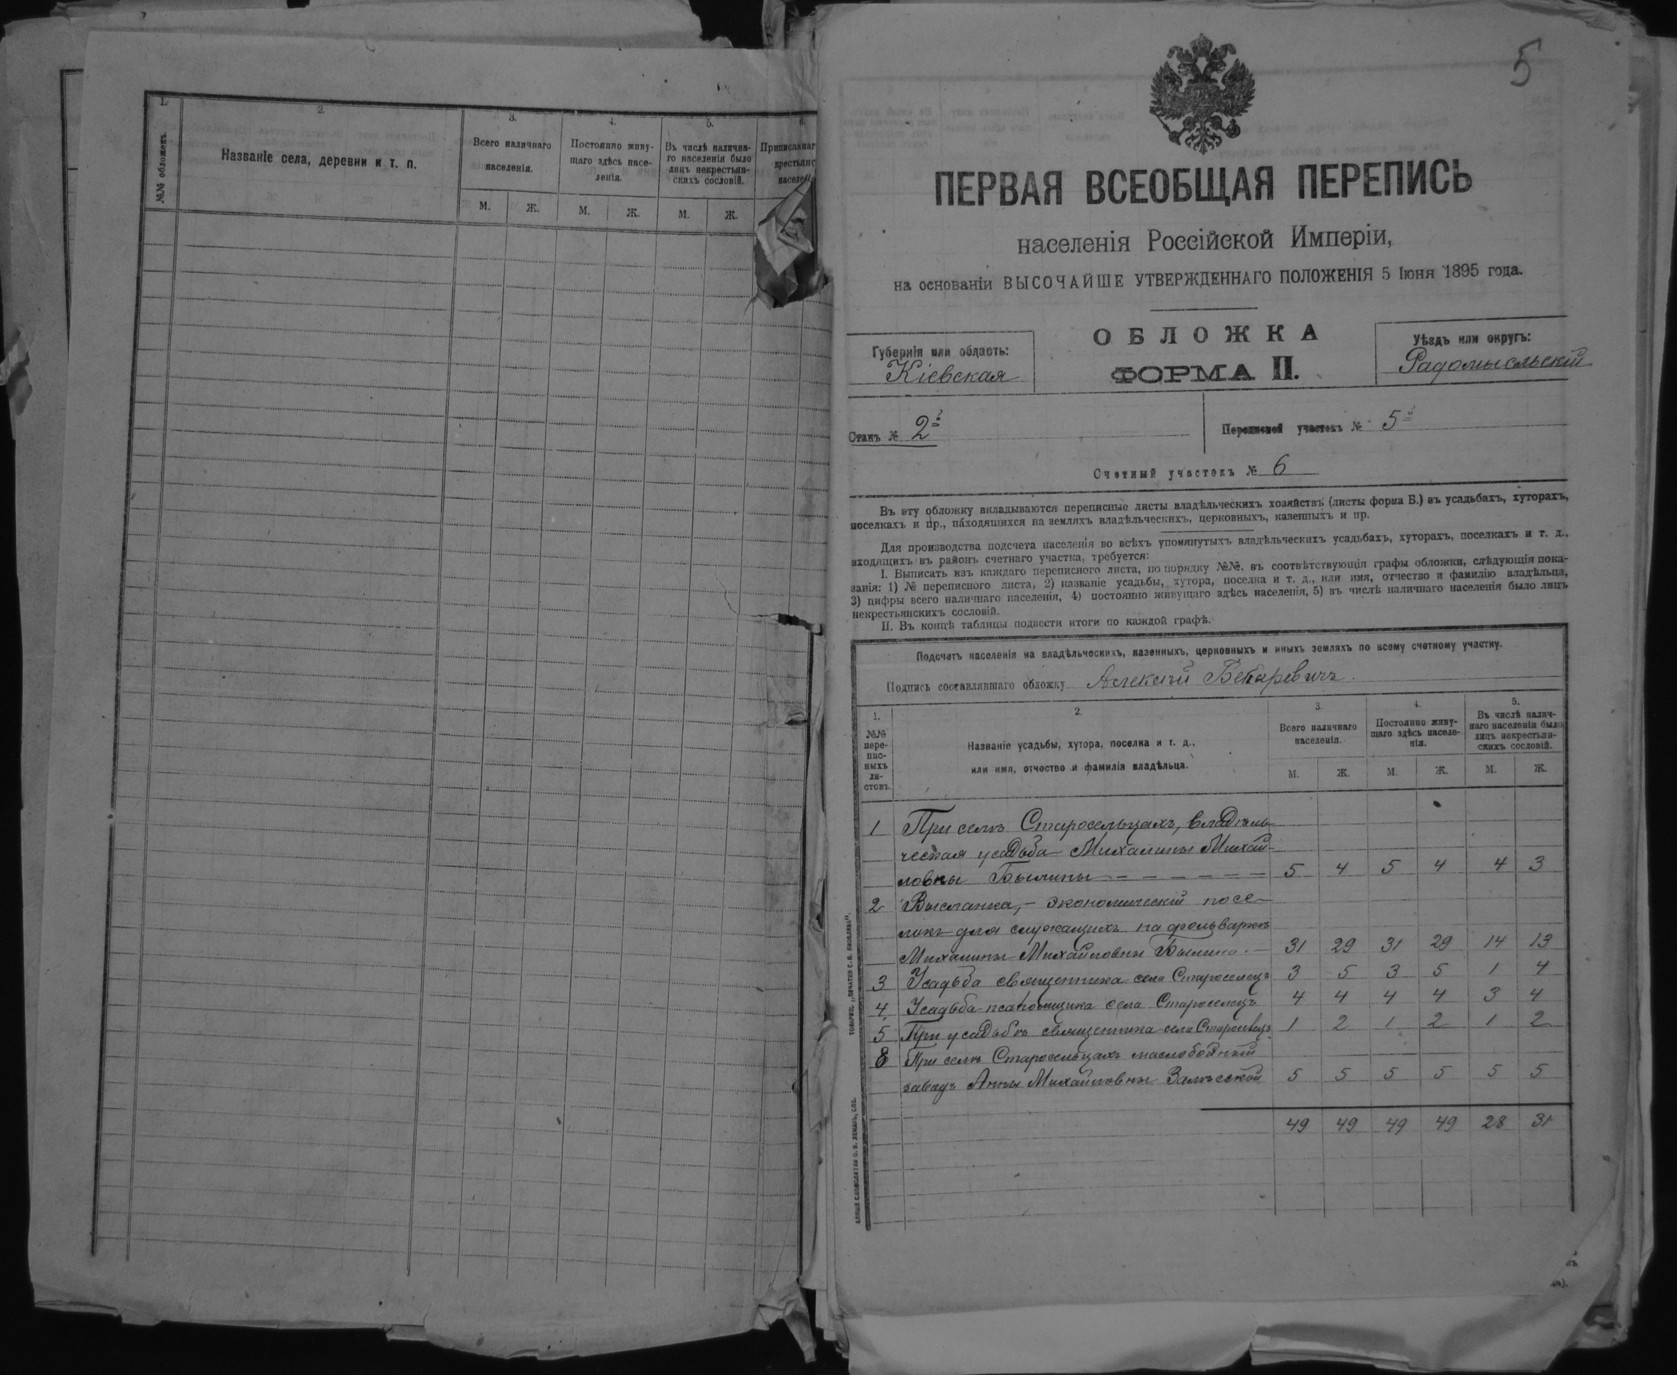 1.
2.
3.
4.
5.
6.
№№ обложекъ.
Названіе села, деревни и т. п.
Всего наличнаго населенія.
Постоянно живу-
щаго здѣсь насе-
ленія.
Въ числѣ налична-
го населенія было
лицъ некрестьян-
скихъ сословій.
М.
Ж.
М.
Ж.
М.
Ж.
5
ПЕРВАЯ ВСЕОБЩАЯ ПЕРЕПИСЬ
населенія Россійской Имперіи,
на основаніи ВЫСОЧАЙШЕ УТВЕРЖДЕННАГО ПОЛОЖЕНІЯ 5 Іюня 1895 года.
ОБЛОЖКА
ФОРМА II.
Губернія или область:
Кіевская
Уѣздъ или округъ:
Радомысльскій
Станъ № 2й
Переписной участокъ № 5й
Счетный участокъ № 6
Въ эту обложку вкладываются переписные листы владѣльческихъ хозяйствъ (листы форма Б.) въ усадьбахъ, хуторахъ,
поселкахъ и пр., находящихся на земляхъ владѣльческихъ, церковныхъ, казенныхъ и пр.
Для производства подсчета населенія во всѣхъ упомянутыхъ владѣльческихъ усадьбахъ, хуторахъ, поселкахъ и т. д.,
входящихъ въ районъ счетнаго участка, требуется:
I. Выписать изъ каждаго переписного листа, по порядку №№, въ соотвѣтствующія графы обложки, слѣдующія пока-
занія: 1) № переписного листа, 2) названіе усадьбы, хутора, поселка и т. д., или имя, отчество и фамилію владѣльца,
3) цифры всего наличнаго населенія, 4) постоянно живущаго здѣсь населенія, 5) въ числѣ наличнаго населенія было лицъ
некрестьянскихъ сословій.
II. Въ концѣ таблицы подвести итоги по каждой графѣ.
Подсчетъ населенія на владѣльческихъ, казенныхъ, церковныхъ и иныхъ земляхъ по всему счетному участку.
Подпись составлявшаго обложку Алексѣй
1.
2.
3.
4.
5.
№№
пере-
пис-
ныхъ
ли-
стовъ.
Названіе усадьбы, хутора, поселка и т. д.,
или имя, отчество и фамилія владѣльца.
Всего наличнаго
населенія.
Постоянно живу-
щаго здѣсь населе-
нія.
Въ числѣ налич-
наго населенія было
лицъ некрестьян-
скихъ сословій.
М. Ж. М. Ж. М. Ж.
1 При селѣ Старосельцахъ, владѣль-
ческая усадьба Михалины Михай-
ловны Былины 5 4 5 4 4 3
2 экономическій посе-
локъ для служащихъ на фольваркѣ
Михалины Михайловны Былины 31 29 31 29 14 13
3 Усадьба священника села Староселецъ 3 5 3 5 1 4
4 Усадьба псаломщика села Староселецъ 4 4 4 4 3 4
5 При усадьбѣ священника села Староселецъ 1 2 1 2 1 2
6 При селѣ Старосельцахъ маслобойный
заводъ Анны Михайловны Залѣсской 5 5 5 5 5 5
49 49 49 49 28 31